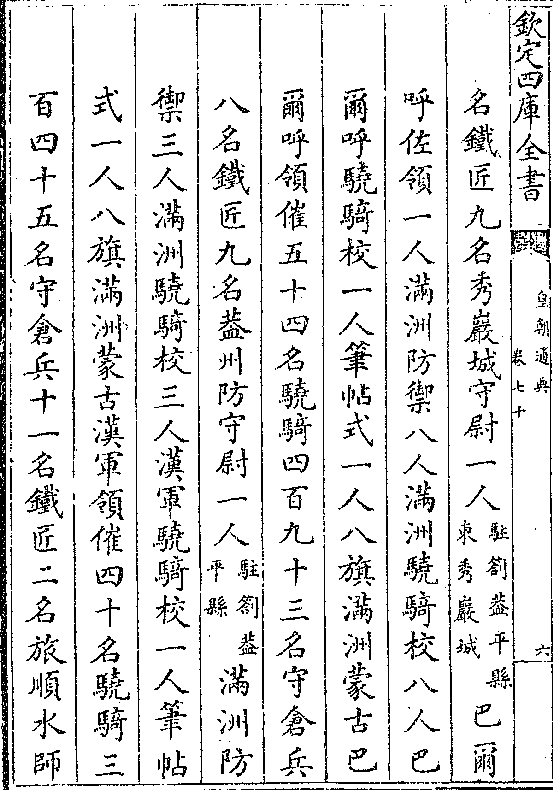 欽定四庫全書
皇朝通典
卷七十
六
名鐵匠九名秀巖城守尉一人駐劄葢平縣東秀巖城巴爾
呼佐領一人滿洲防禦八人滿洲驍騎校八人巴
爾呼驍騎校一人筆帖式一人八旗滿洲蒙古巴
爾呼領催五十四名驍騎四百九十三名守倉兵
八名鐵匠九名葢州防守尉一人駐劄葢平縣滿洲防
禦三人滿洲驍騎校三人漢軍驍騎校一人筆帖
式一人八旗滿洲蒙古漢軍領催四十名驍騎三
百四十五名守倉兵十一名鐵匠二名旅順水師